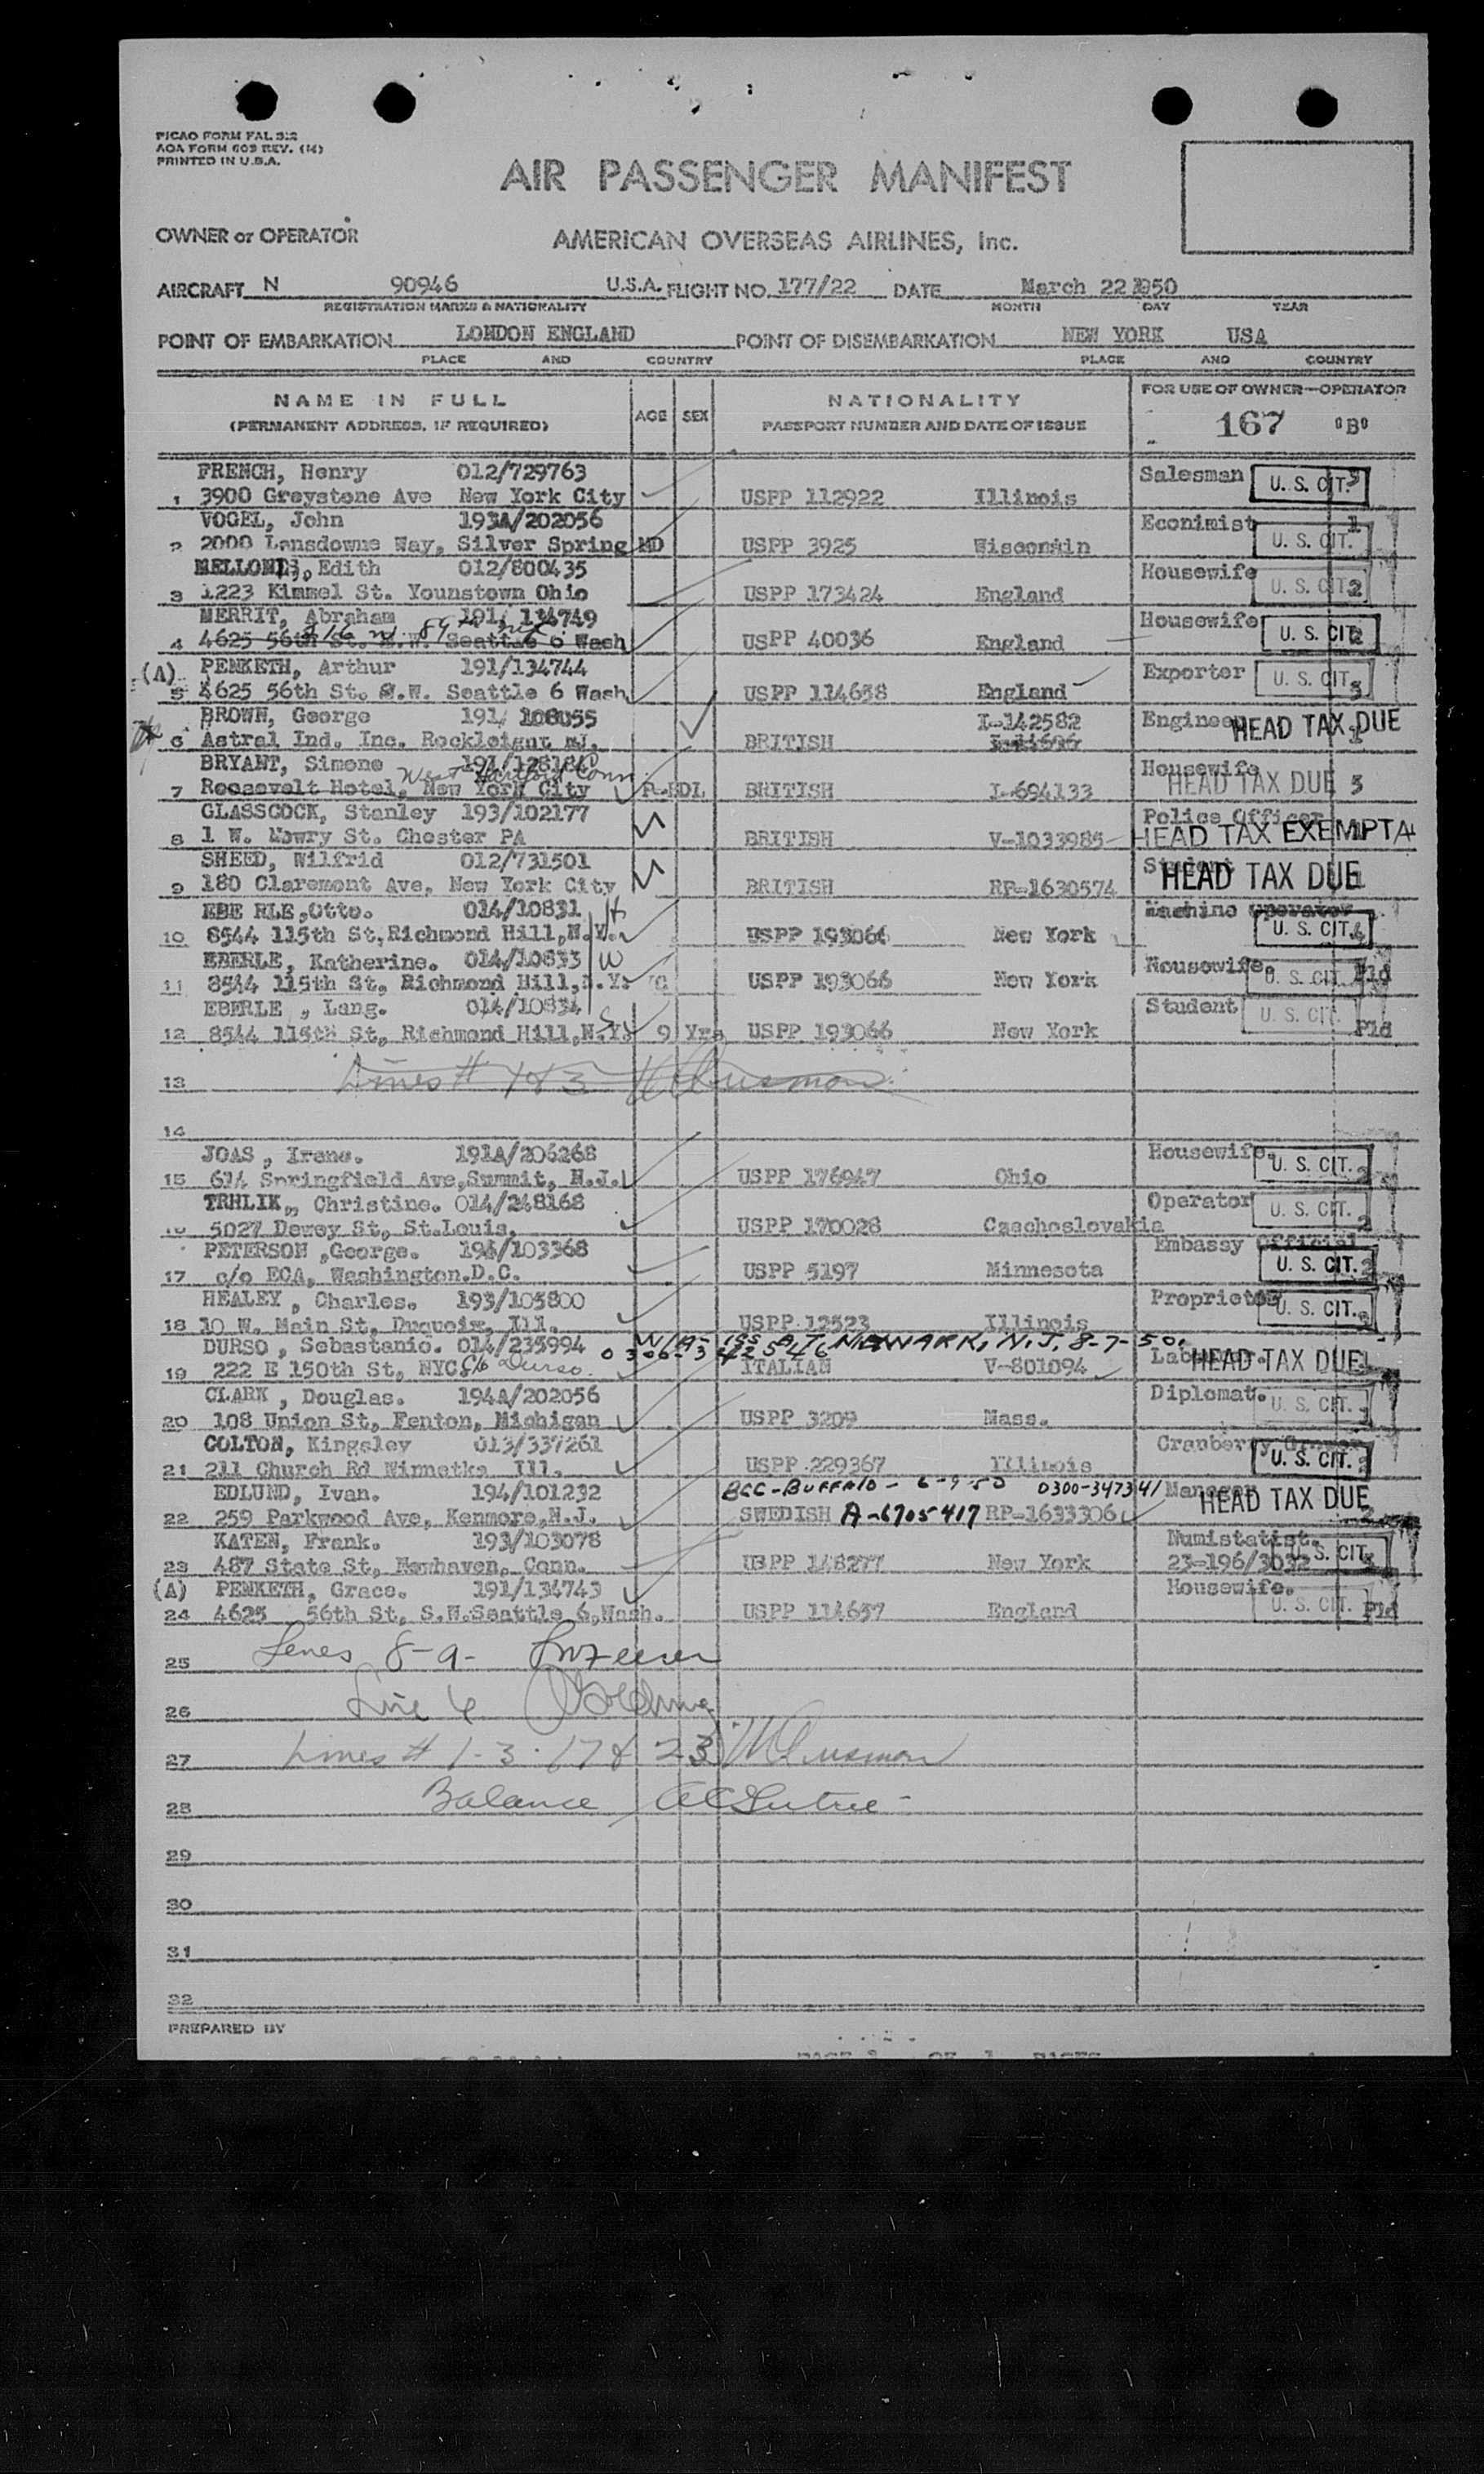 PICAO FORM FAL 3:2
AOA FORM 603 REV. (14)
PRINTED IN U.S.A.
AIR PASSENGER MANIFEST
OWNER or OPERATOR AMERICAN OVERSEAS AIRLINES, Inc.
AIRCRAFT N 90946 U.S.A. FLIGHT NO. 177/22 DATE March 22 1950
REGISTRATION MARKS & NATIONALITY MONTH DAY YEAR
POINT OF EMBARKATION LONDON ENGLAND POINT OF DISEMBARKATION NEW YORK USA
PLACE AND COUNTRY PLACE AND COUNTRY
NAME IN FULL AGE SEX NATIONALITY FOR USE OF OWNER—OPERATOR
(PERMANENT ADDRESS, IF REQUIRED) PASSPORT NUMBER AND DATE OF ISSUE 167 "B"
FRENCH, Henry 012/729763 Salesman U. S. CIT.
1 3900 Greystone Ave New York City USPP 112922 Illinois
VOGEL, John 193A/202056 Econimist 1
2 2000 Lansdowne Way, Silver Spring MD USPP 3925 Wisconsin U. S. CIT.
Edith 012/800435 Housewife
3 1223 Kimmel St. Younstown Ohio USPP 173424 England U. S. CIT. 2
MERRIT, Abraham 191/134749 Housewife
4 4625 56th St. S.W. Seattle 6 Wash USPP 40036 England U. S. CIT.
(A) PENKETH, Arthur 191/134744 Exporter U. S. CIT.
5 4625 56th St. S.W. Seattle 6 Wash USPP 114658 England
BROWN, George 191/ 108055 I-142582 Engineer HEAD TAX DUE
6 Astral Ind. Inc. Rockleigh NJ. BRITISH
BRYANT, Simone West Hartford Conn Housewife
7 Roosevelt Hotel, New York City BRITISH I-694133 HEAD TAX DUE 3
GLASSCOCK, Stanley 193/102177 Police Officer
8 1 W. Mowry St. Chester PA BRITISH V-1033985 HEAD TAX EXEMPT
SHEED, Wilfrid 012/731501 Student
9 180 Claremont Ave, New York City BRITISH RP-1630574 HEAD TAX DUE
EBERLE, Otto. 014/10831 H Machine Operator
10 8544 115th St, Richmond Hill, N.Y. USPP 193066 New York U. S. CIT.
EBERLE, Katherine. 014/10833 W Housewife.
11 8544 115th St, Richmond Hill, N.Y. USPP 193066 New York U. S. CIT. Pld
EBERLE , Lang. 014/10834 Student U. S. CIT.
12 8544 115th St, Richmond Hill, N.Y. 9 Yrs USPP 193066 New York Pld
13 Lines # 1 & 3
14
JOAS , Irene. 191A/206268 Housewife. U. S. CIT.
15 614 Springfield Ave, Summit, N.J. USPP 176947 Ohio
TRHLIK, Christine. 014/248168 Operator U. S. CIT.
16 5027 Dewey St, St.Louis. USPP 170028 Czechoslovakia 2
PETERSON ,George. 194/103368 Embassy Official
17 c/o ECA, Washington.D.C. USPP 5197 Minnesota U. S. CIT.
HEALEY , Charles. 193/105800 Proprietor U. S. CIT.
18 10 W. Main St, Duquoix, Ill. USPP 12523 Illinois
DURSO , Sebastanio. 014/235994 ISS AT NEWARK, N.J. 8-7-50.
19 222 E 150th St, NYC. c/o Durso ITALIAN V-801094 HEAD TAX DUE
CLARK , Douglas. 194A/202056 Diplomat. U. S. CIT.
20 108 Union St, Fenton, Michigan USPP 3209 Mass.
COLTON, Kingsley 013/337261 Cranberry Grower
21 211 Church Rd Winnetka Ill. USPP 229367 Illinois U. S. CIT.
EDLUND, Ivan. 194/101232 BCC-BUFFALO - 6-9-50 0300-347341 Manager HEAD TAX DUE
22 259 Parkwood Ave, Kenmore, N.J. SWEDISH A-6705417 RP-1633306
KATEN, Frank. 193/103078 Numistatist. U. S. CIT.
23 487 State St, Newhaven, Conn. USPP 148277 New York 23-196/3032
(A) PENKETH, Grace. 191/134743 Housewife. U. S. CIT.
24 4625 56th St, S.W.Seattle 6, Wash. USPP 114657 England Pld
25 Lines 8-9-
26 Line 6
27 Lines # 1-3-17 & 23
28 Balance
29
30
31
32
PREPARED BY